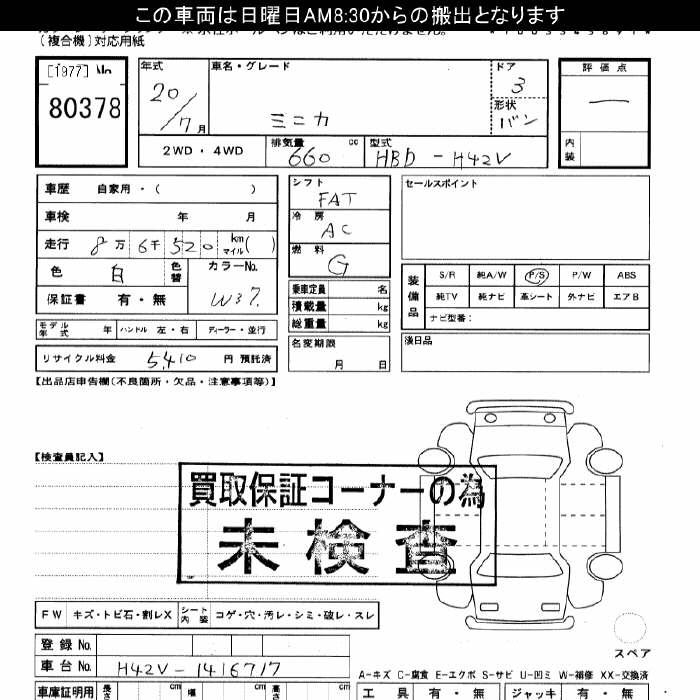 この車両は日曜日AM8:30からの搬出となります
(複合機)対応用紙
[1977] No
80378
年式 20/7月
車名・グレード ミニカ
ドア 3
形状 バン
評価点 一
内装
2WD・4WD
排気量 660 cc
型式 HBD-H42V
車歴 自家用・( )
車検 年 月
走行 8万6千520 km マイル( )
色 白 色替
カラーNo. W37.
保証書 有・無
モデル年式 年 ハンドル 左・右 ディーラー・並行
リサイクル料金 5,410 円 預託済
シフト FAT
冷房 AC
燃料 G
乗車定員 名
積載量 kg
総重量 kg
名変期限 月 日
セールスポイント
装備品
S/R 純A/W P/S P/W ABS
純TV 純ナビ 革シート 外ナビ エアB
ナビ型番:
備品
【出品店申告欄(不良箇所・欠品・注意事項等)】
【検査員記入】
買取保証コーナーの為
未検査
FW キズ・トビ石・割レX シート内装 コゲ・穴・汚レ・シミ・破レ・スレ
登録No.
車台No. H42V-1416717
車庫証明用 長さ cm 幅 cm 高さ cm
スペア
A-キズ C-腐食 E-エクボ S-サビ U-凹ミ W-補修 XX-交換済
工具 有・無 ジャッキ 有・無